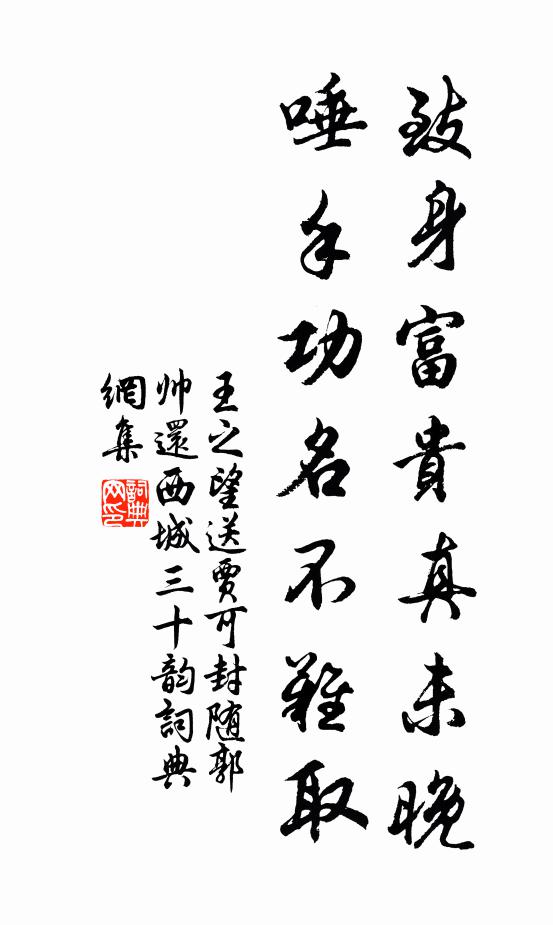 致身富貴真未晚
唾手功名不難取
王之望送賈可封随郭
帅還西城三十韵詞典
網集
詞典網印